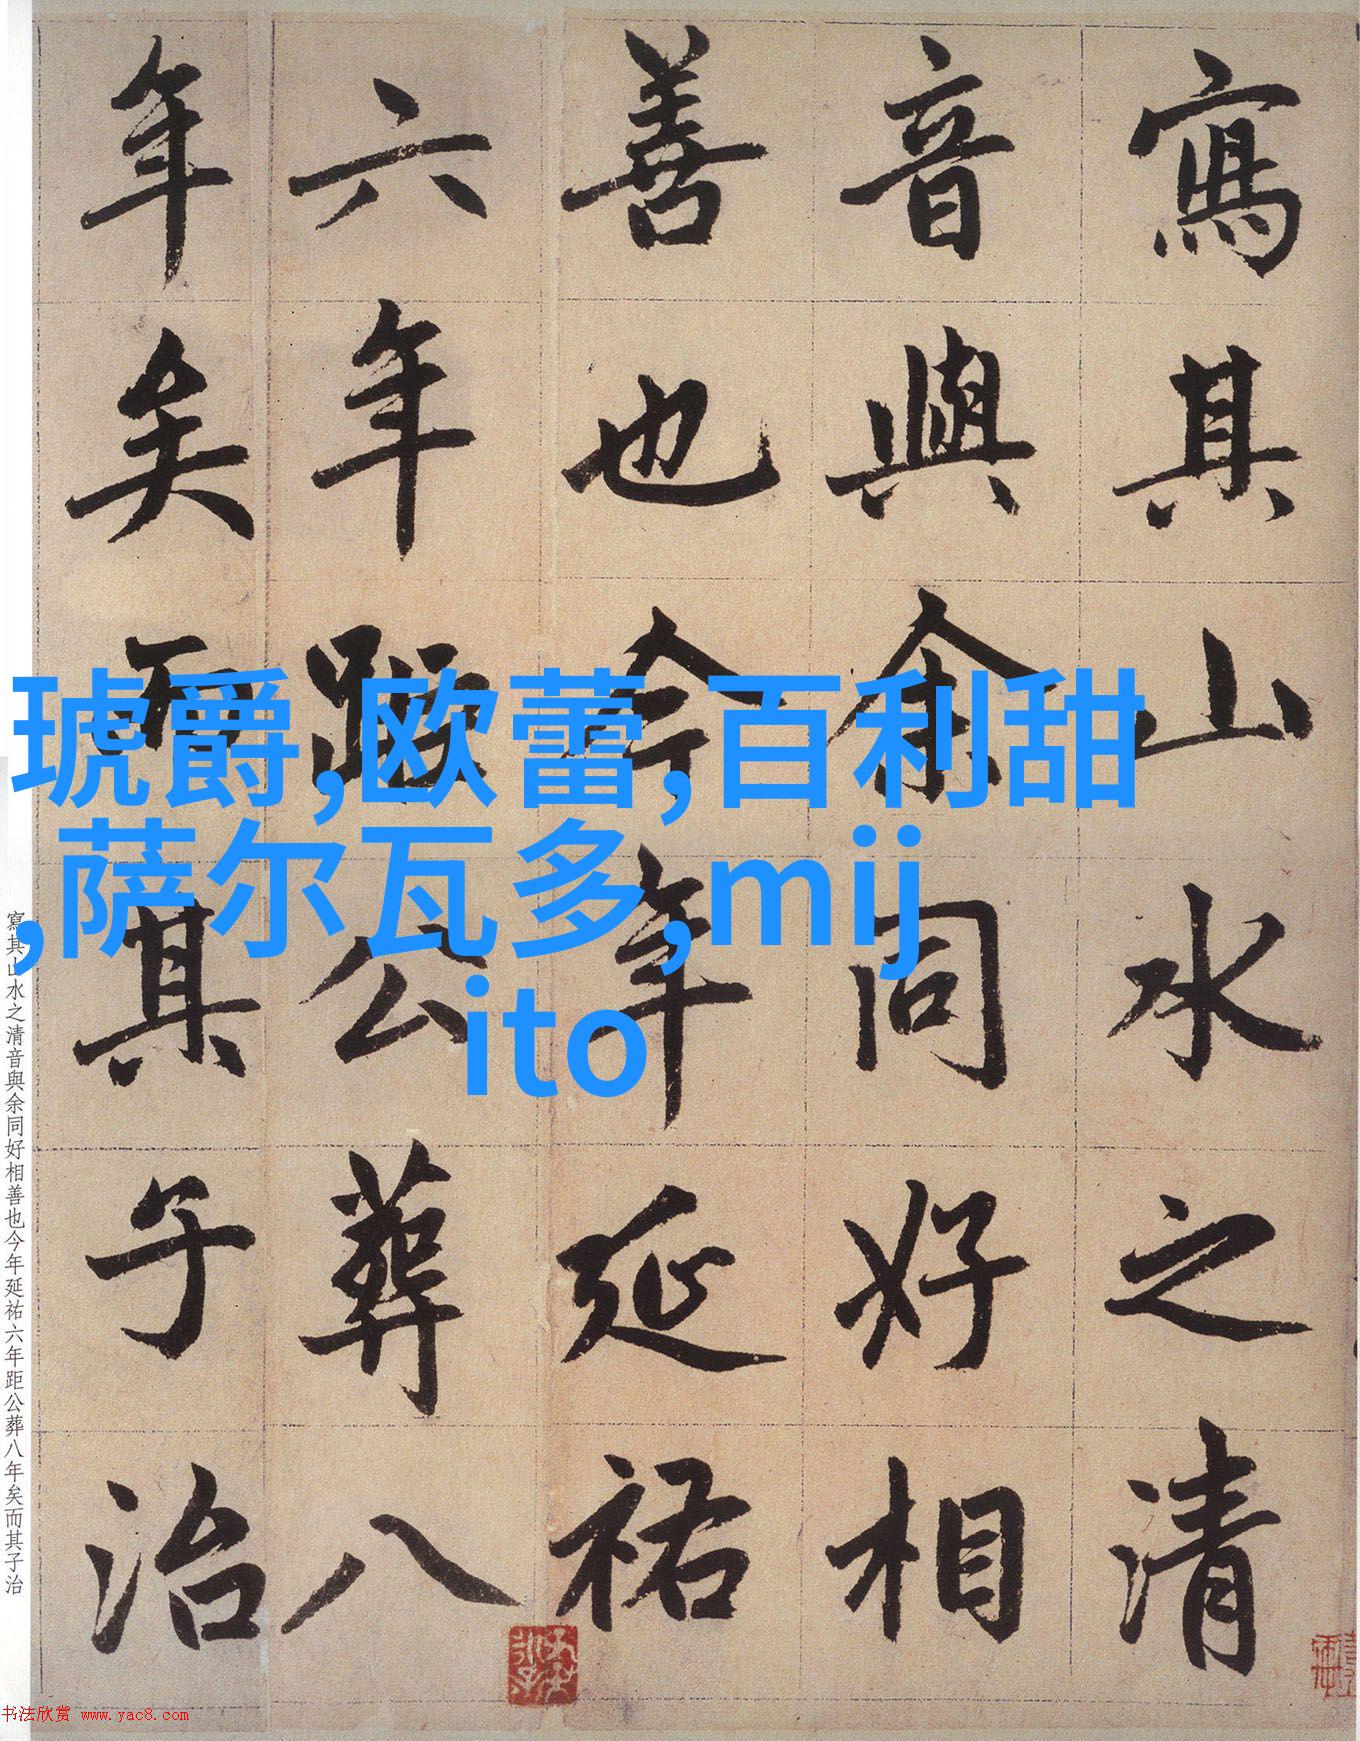 寫其山水之清
音與余同好相
善也今年延祐
六年距公葬八
年矣而其子治
琥爵,欧蕾,百利甜
,萨尔瓦多,mij
ito
寫其山水之清音與余同好相善也今年延祐六年距公葬八年矣而其子治
书法欣赏 www.yac8.com